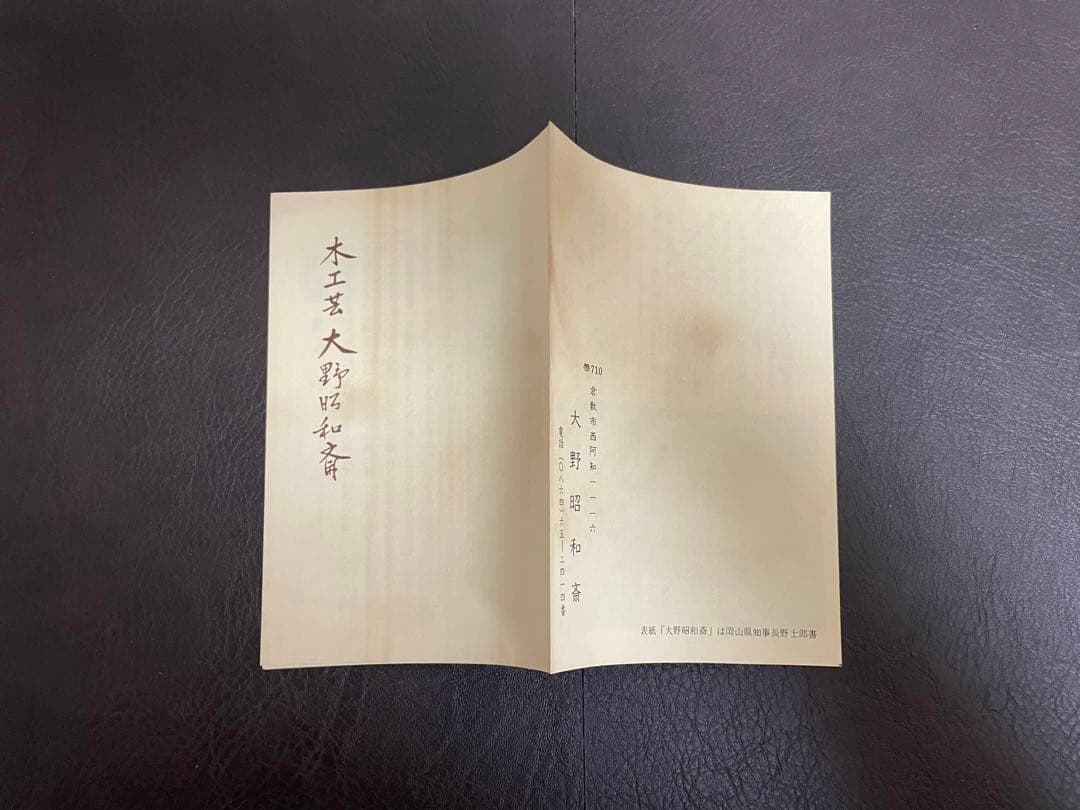 木工芸 大野昭和斎
〠710
倉敷市西阿知一一一六
大野昭和斎
電話(〇八六四)六五ー二四一四番
表紙「大野昭和斎」は岡山県知事長野士郎書